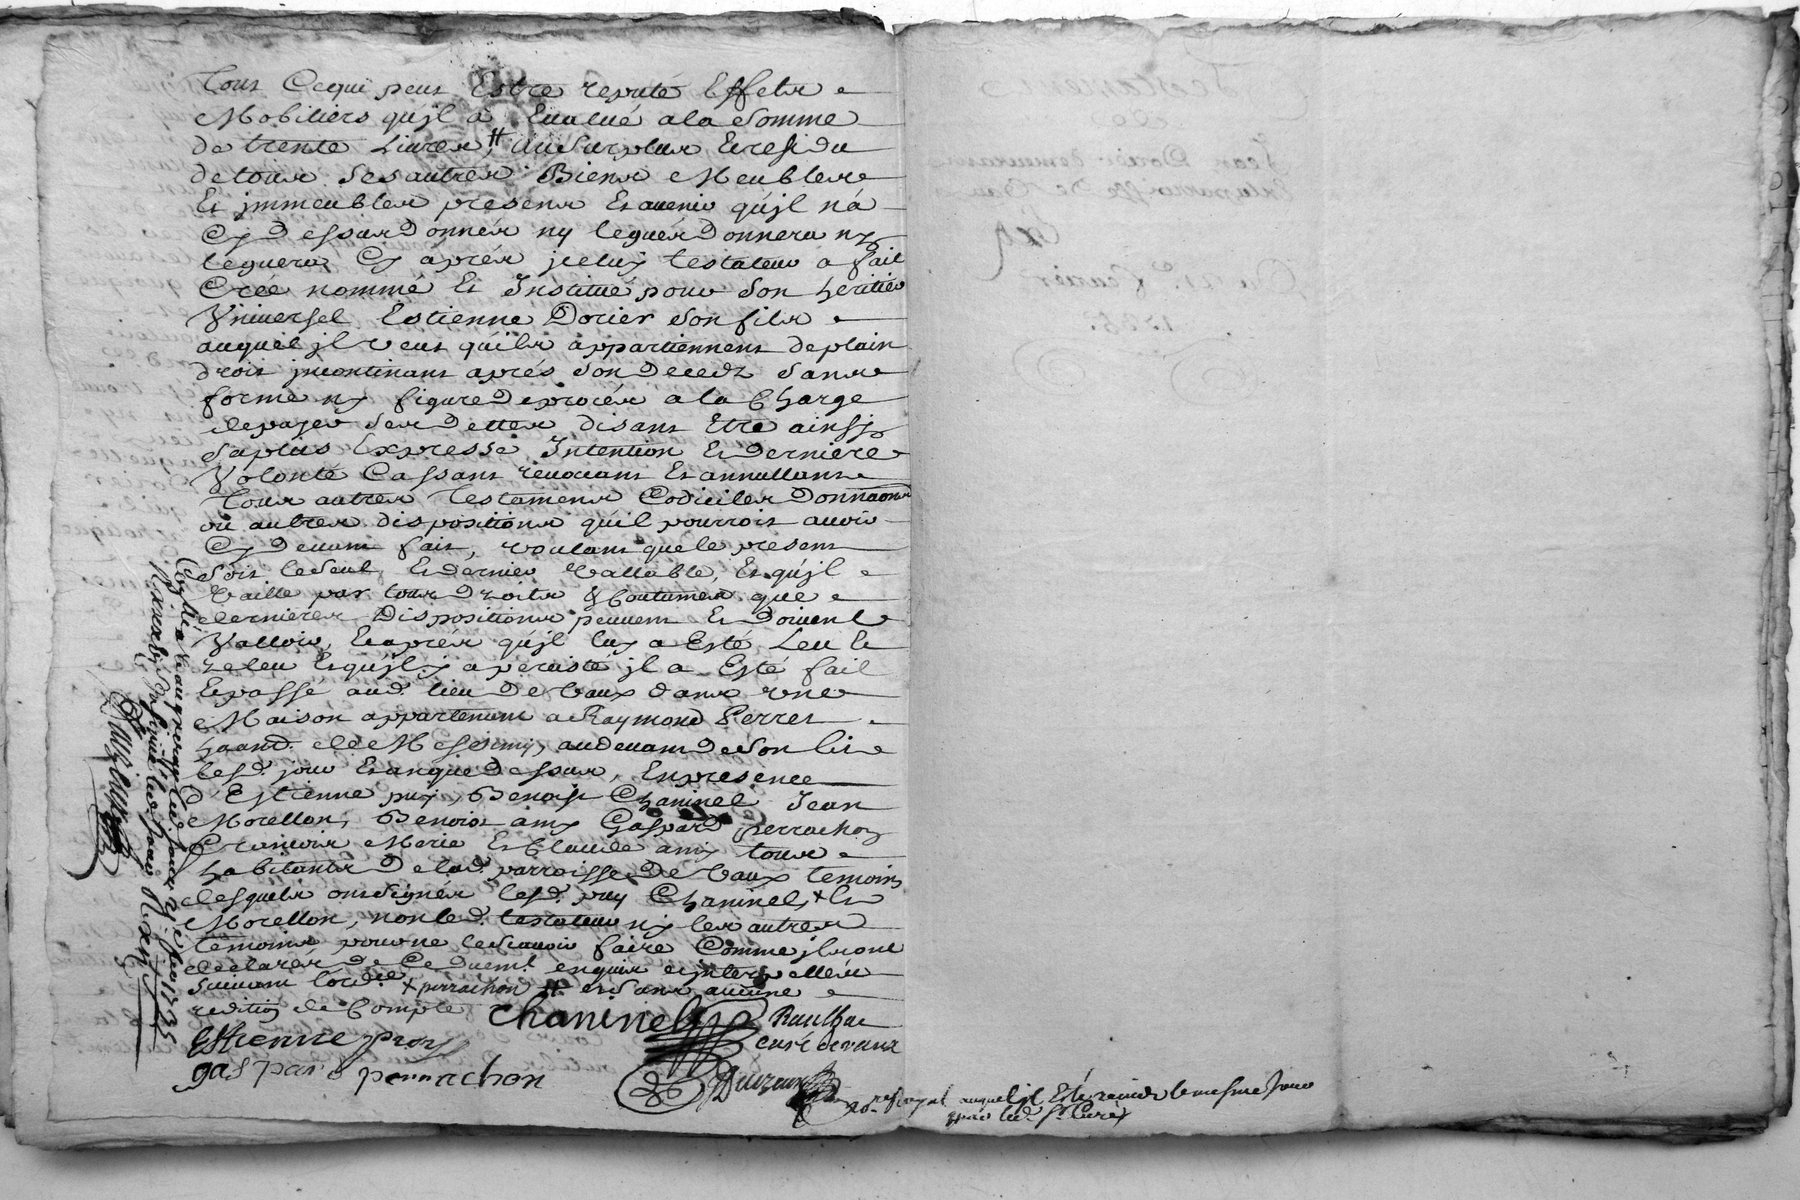 Tout Cequi peut Estre reputé Effets
Mobiliers qu'jl a Eualué a la Somme
de trente Liures, # au Surplus Et residu
de tous Ses autres Biens Meubles
Et jmmeubles presens Et auenir qu'jl n'a
Cy Dessus Donnés ny legués Donnera ny
leguera Cy aprés jceluy testateur a fait
Créé nommé Et Institué pour Son heritier
Vniuersel Estienne Dorier Son fils
auquel jl veut qu'ils appartiennent de plain
droit jncontinant aprés Son Decedz Sans
forme ny figure De procés a la Charge
de payer Ses Dettes disant Etre ainsy
Sa plus Expresse Intention Et Derniere
Volonté Cassant reuocant Et annullant
Tous autres Testamens Codiciles Donnaons
ou autres dispositions qu'il pourroit auoir
Cy Deuant fait, voulant que le present
Soit le Seul Et dernier Vallable, Et qu'jl
Vaille par tous Droits & Coutumes que
dernieres Dispositions peuuent Et Doiuent
Valloir, Et aprés qu'jl luy a Esté Leu Et
releu Et qu'jl y a percisté jl a Esté fait
Et passé aud. lieu De Vaux dans vne
Maison appartenant a Raymond Perret
hand. de Messimy, au deuant De Son lit
lesd. jour Et an que Dessus, En presence
d'Estienne puy, Benoist Chaninel Jean
Morellon, Benoist amy Gaspard perrachon
François Merie Et Claude amy tous
habitants De lad. parroisse De Vaux temoins
lesquels ont Signés lesd. puy Chaninel, + Et
Morellon, non led. testateur ny les autres
temoins pour ne le Scauoir faire Comme jls ont
declarés De Ce Duemt. enquis Et jnterpellés
Suiuant lord.ce + perrachon # et Sans aucune
reditio de Compte
Chaninel Raulhac
curé de vaux
Estienne puy
gaspard perrachon
Royal auquel jl Esté remis le mesme Jour
par led. Sr. Curé